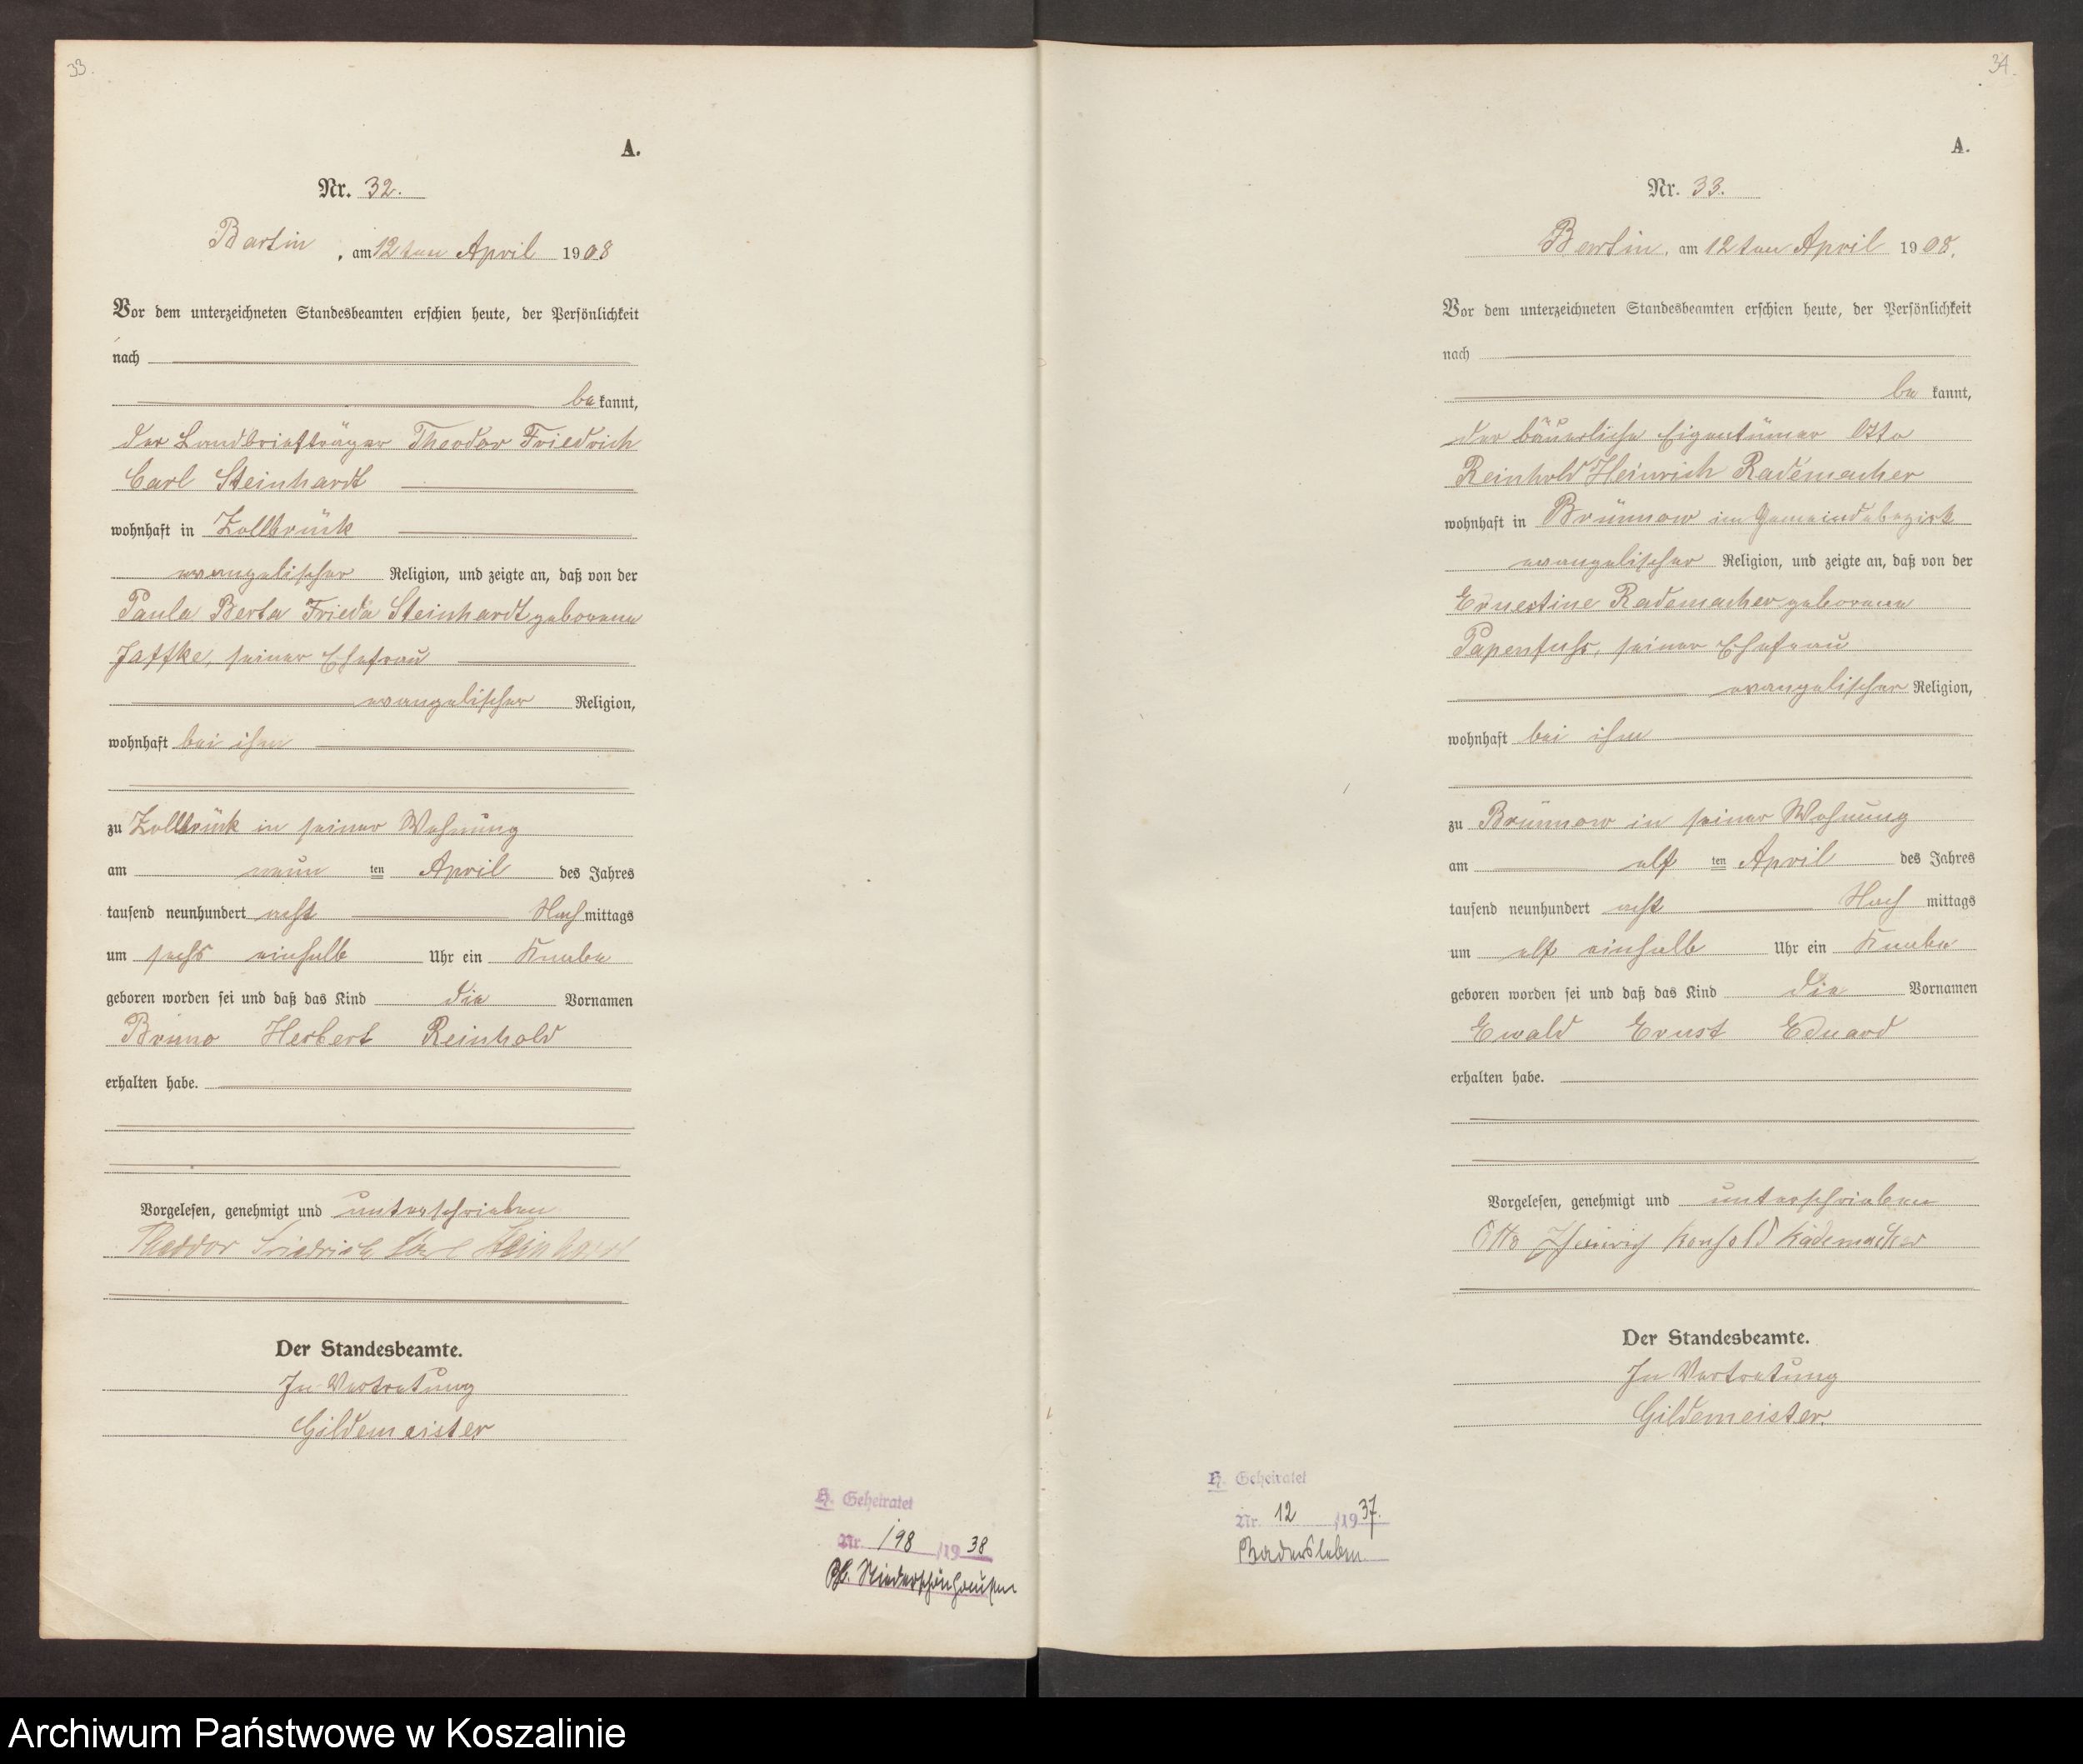 33.
A.
Nr. 32.
Bartin, am 12ten April 1908
Vor dem unterzeichneten Standesbeamten erschien heute, der Persönlichkeit
nach
bekannt,
der Landbriefträger Theodor Friedrich
Carl Steinhardt
wohnhaft in Zollbrück
evangelischer Religion, und zeigte an, daß von der
Paula Berta Frieda Steinhardt geborene
Jaffke, seiner Ehefrau
evangelischer Religion,
wohnhaft bei ihm
zu Zollbrück in seiner Wohnung
am neun ten April des Jahres
tausend neunhundert acht Nachmittags
um sechs einhalb Uhr ein Knabe
geboren worden sei und daß das Kind die Vornamen
Bruno Herbert Reinhold
erhalten habe.
Vorgelesen, genehmigt und unterschrieben
Theodor Friedrich Karl Steinhardt
Der Standesbeamte.
In Vertretung
Gildemeister
H. Geheiratet
Nr. 198 /1938
Niederschönhausen
34.
A.
Nr. 33.
Bartin, am 12ten April 1908.
Vor dem unterzeichneten Standesbeamten erschien heute, der Persönlichkeit
nach
bekannt,
der bäuerliche Eigentümer Otto
Reinhold Heinrich Rademacher
wohnhaft in Brünnow im Gemeindebezirk
evangelischer Religion, und zeigte an, daß von der
Ernestine Rademacher geborene
Papenfuhs, seiner Ehefrau
evangelischer Religion,
wohnhaft bei ihm
zu Brünnow in seiner Wohnung
am elf ten April des Jahres
tausend neunhundert acht Nachmittags
um elf einhalb Uhr ein Knabe
geboren worden sei und daß das Kind die Vornamen
Ewald Ernst Eduard
erhalten habe.
Vorgelesen, genehmigt und unterschrieben
Otto Heinrich Rademacher
Der Standesbeamte.
In Vertretung
Gildemeister.
H. Geheiratet
Nr. 12 /1937.
Badersleben
Archiwum Państwowe w Koszalinie